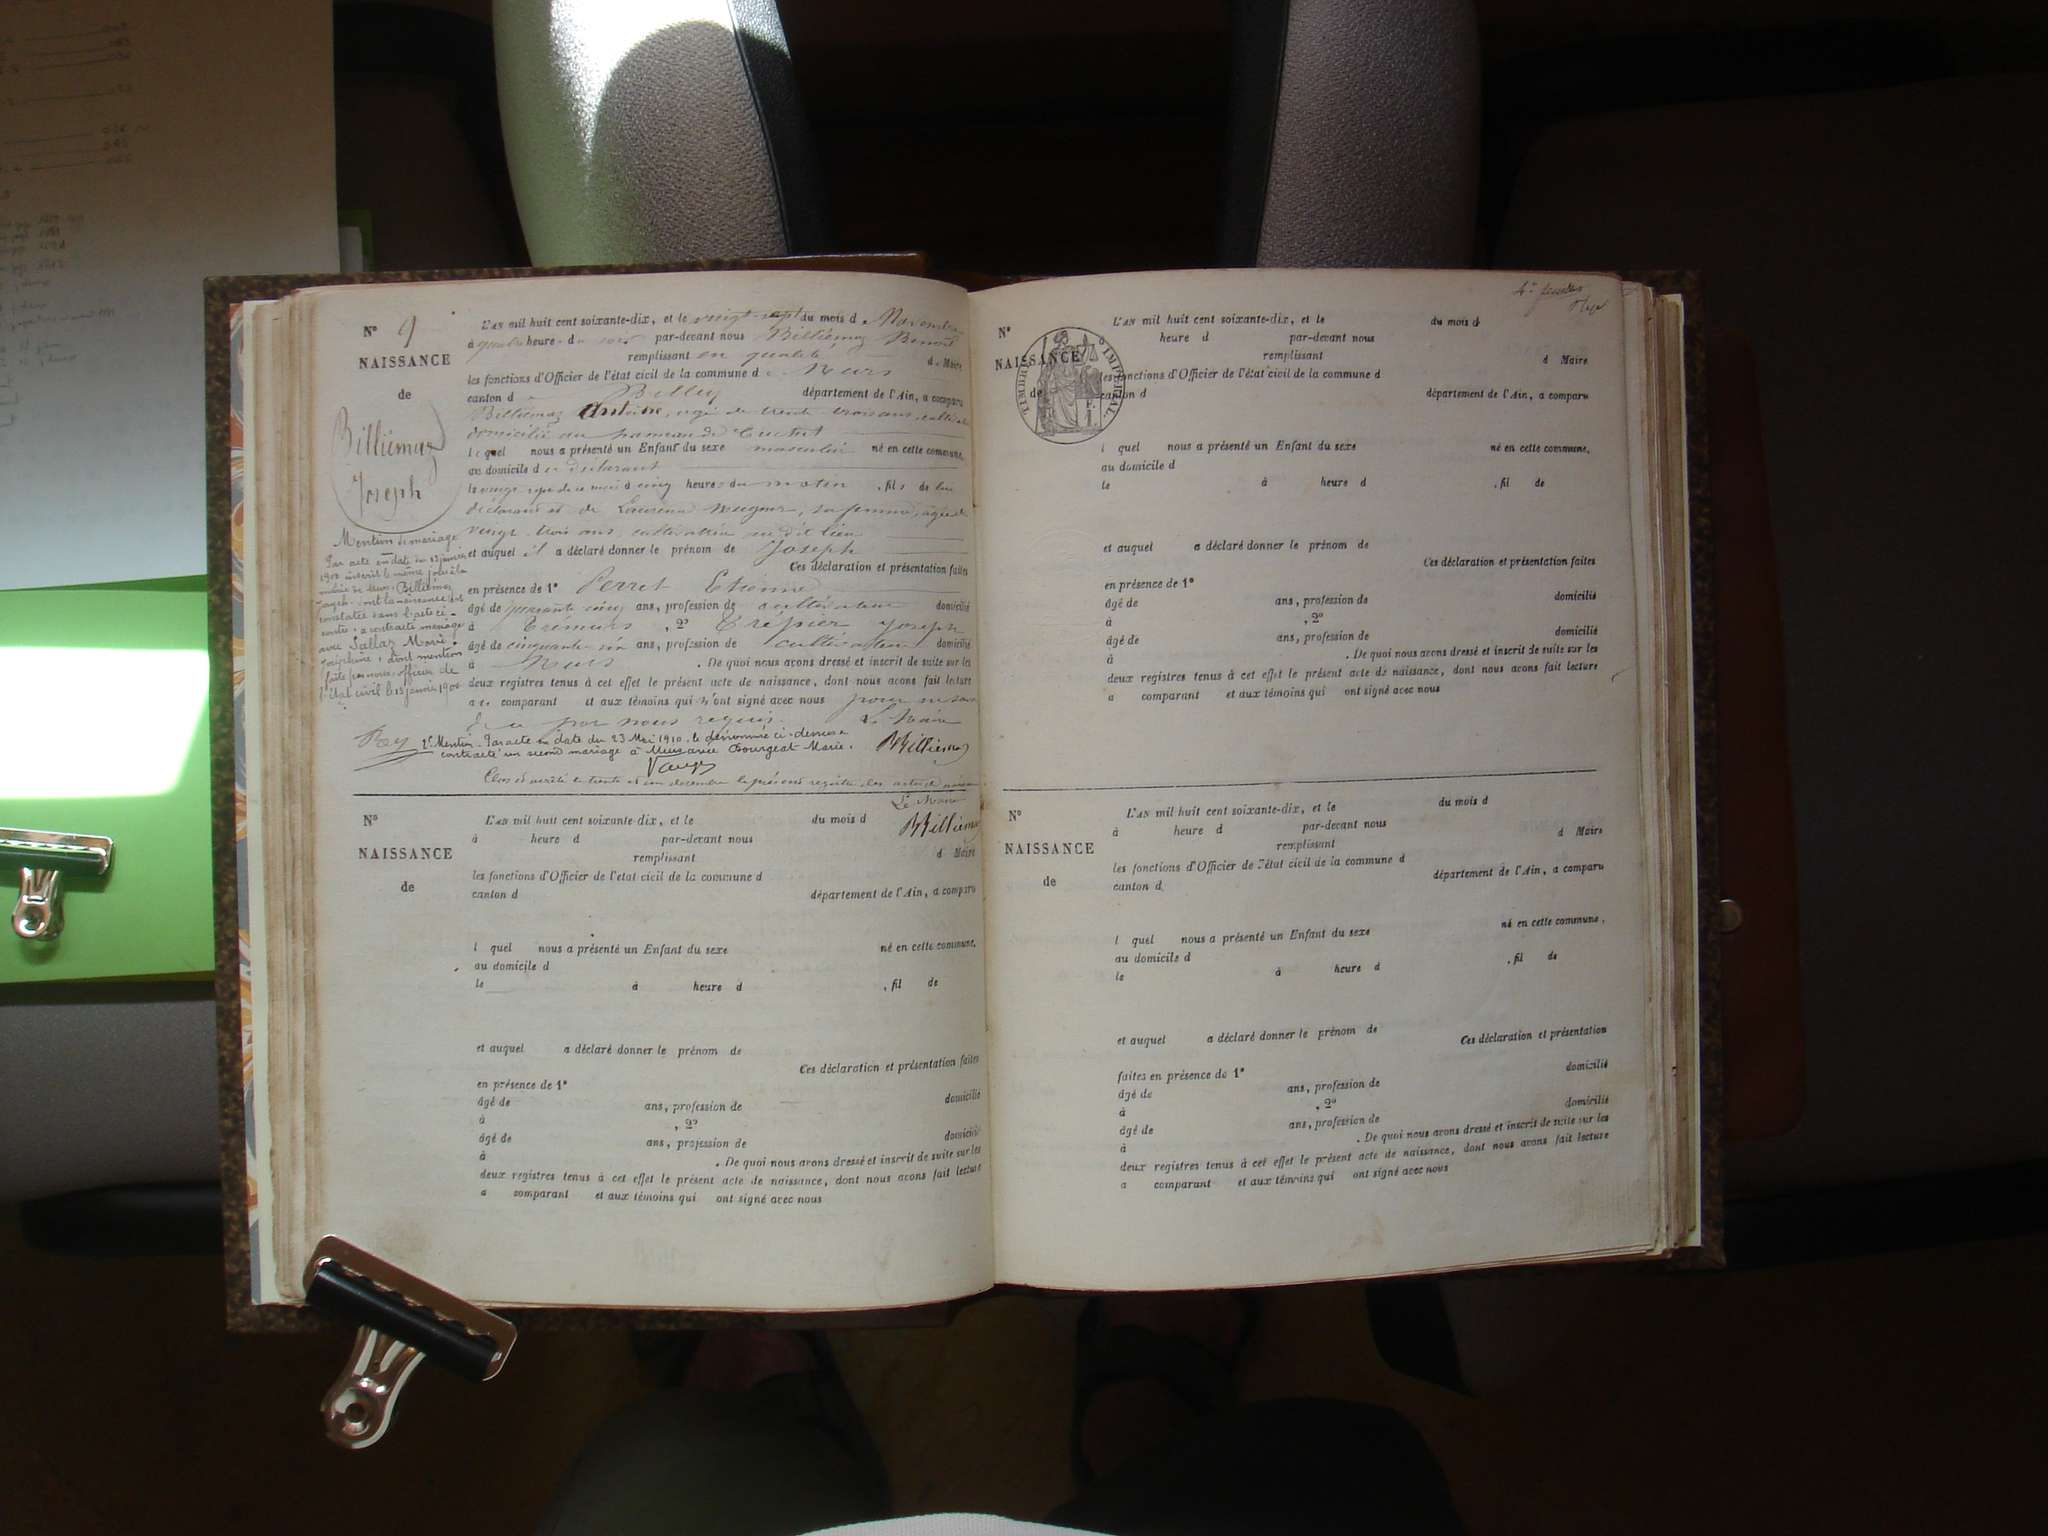 N° 9
NAISSANCE
de
Billiemaz
Joseph
L'AN mil huit cent soixante-dix, et le vingt-sept du mois de Novembre
à quatre heures du soir par-devant nous Billiémaz Benoît
remplissant en qualité de Maire
les fonctions d'Officier de l'état civil de la commune de Murs
canton de Belley département de l'Ain, a comparu
Billiémaz Antoine, agé de trente trois ans, cultivateur
domicilié au hameau de
lequel nous a présenté un Enfant du sexe masculin né en cette commune,
au domicile du déclarant
le vingt sept de ce mois à cinq heures du matin, fils de lui
déclarant et de sa femme, agée de
vingt trois ans, cultivatrice au dit lieu
et auquel il a déclaré donner le prénom de Joseph
Ces déclaration et présentation faites
en présence de 1° Perret Etienne
âgé de quarante cinq ans, profession de cultivateur domicilié
à , 2° Trépier Joseph
âgé de cinquante six ans, profession de cultivateur domicilié
à Murs. De quoi nous avons dressé et inscrit de suite sur les
deux registres tenus à cet effet le présent acte de naissance, dont nous avons fait lecture
au comparant et aux témoins qui n'ont signé avec nous pour ne savoir
de ce par nous requis. Le Maire
BBilliemaz
Mention de mariage
Par acte en date du 13 janvier
1900 inscrit le même jour à la
mairie de Murs, Billiémaz
Joseph dont la naissance est
constatée dans l'acte ci-
contre, a contracté mariage
avec Sallaz Marie
Joséphine, dont mention
faite par nous, officier de
l'état civil le 13 janvier 1900
Rey
2e Mention. Par acte en date du 23 Mai 1910 le dénommé ci-dessus a
contracté un second mariage à Murs avec Bourgeat Marie.
Clos et arrêté le trente et un decembre le présent registre des actes de naissance
Le Maire
BBilliemaz
N°
NAISSANCE
de
L'AN mil huit cent soixante-dix, et le du mois d
à heure d par-devant nous
remplissant d Maire
les fonctions d'Officier de l'état civil de la commune d
canton d département de l'Ain, a comparu
l quel nous a présenté un Enfant du sexe né en cette commune,
au domicile d
le à heure d , fil de
et auquel a déclaré donner le prénom de
Ces déclaration et présentation faites
en présence de 1°
âgé de ans, profession de domicilié
à , 2°
âgé de ans, profession de domicilié
à . De quoi nous avons dressé et inscrit de suite sur les
deux registres tenus à cet effet le présent acte de naissance, dont nous avons fait lecture
a comparant et aux témoins qui ont signé avec nous
N°
NAISSANCE
de
TIMBRE IMPERIAL
L'AN mil huit cent soixante-dix, et le du mois d
heure d par-devant nous
remplissant d Maire
les fonctions d'Officier de l'état civil de la commune d
canton d département de l'Ain, a comparu
l quel nous a présenté un Enfant du sexe né en cette commune,
au domicile d
le à heure d , fil de
et auquel a déclaré donner le prénom de
Ces déclaration et présentation faites
en présence de 1°
âgé de ans, profession de domicilié
à , 2°
âgé de ans, profession de domicilié
à . De quoi nous avons dressé et inscrit de suite sur les
deux registres tenus à cet effet le présent acte de naissance, dont nous avons fait lecture
a comparant et aux témoins qui ont signé avec nous
N°
NAISSANCE
de
L'AN mil huit cent soixante-dix, et le du mois d
à heure d par-devant nous
remplissant d Maire
les fonctions d'Officier de l'état civil de la commune d
canton d département de l'Ain, a comparu
l quel nous a présenté un Enfant du sexe né en cette commune,
au domicile d
le à heure d , fil de
et auquel a déclaré donner le prénom de
Ces déclaration et présentation
faites en présence de 1°
âgé de ans, profession de domicilié
à , 2°
âgé de ans, profession de domicilié
à . De quoi nous avons dressé et inscrit de suite sur les
deux registres tenus à cet effet le présent acte de naissance, dont nous avons fait lecture
a comparant et aux témoins qui ont signé avec nous